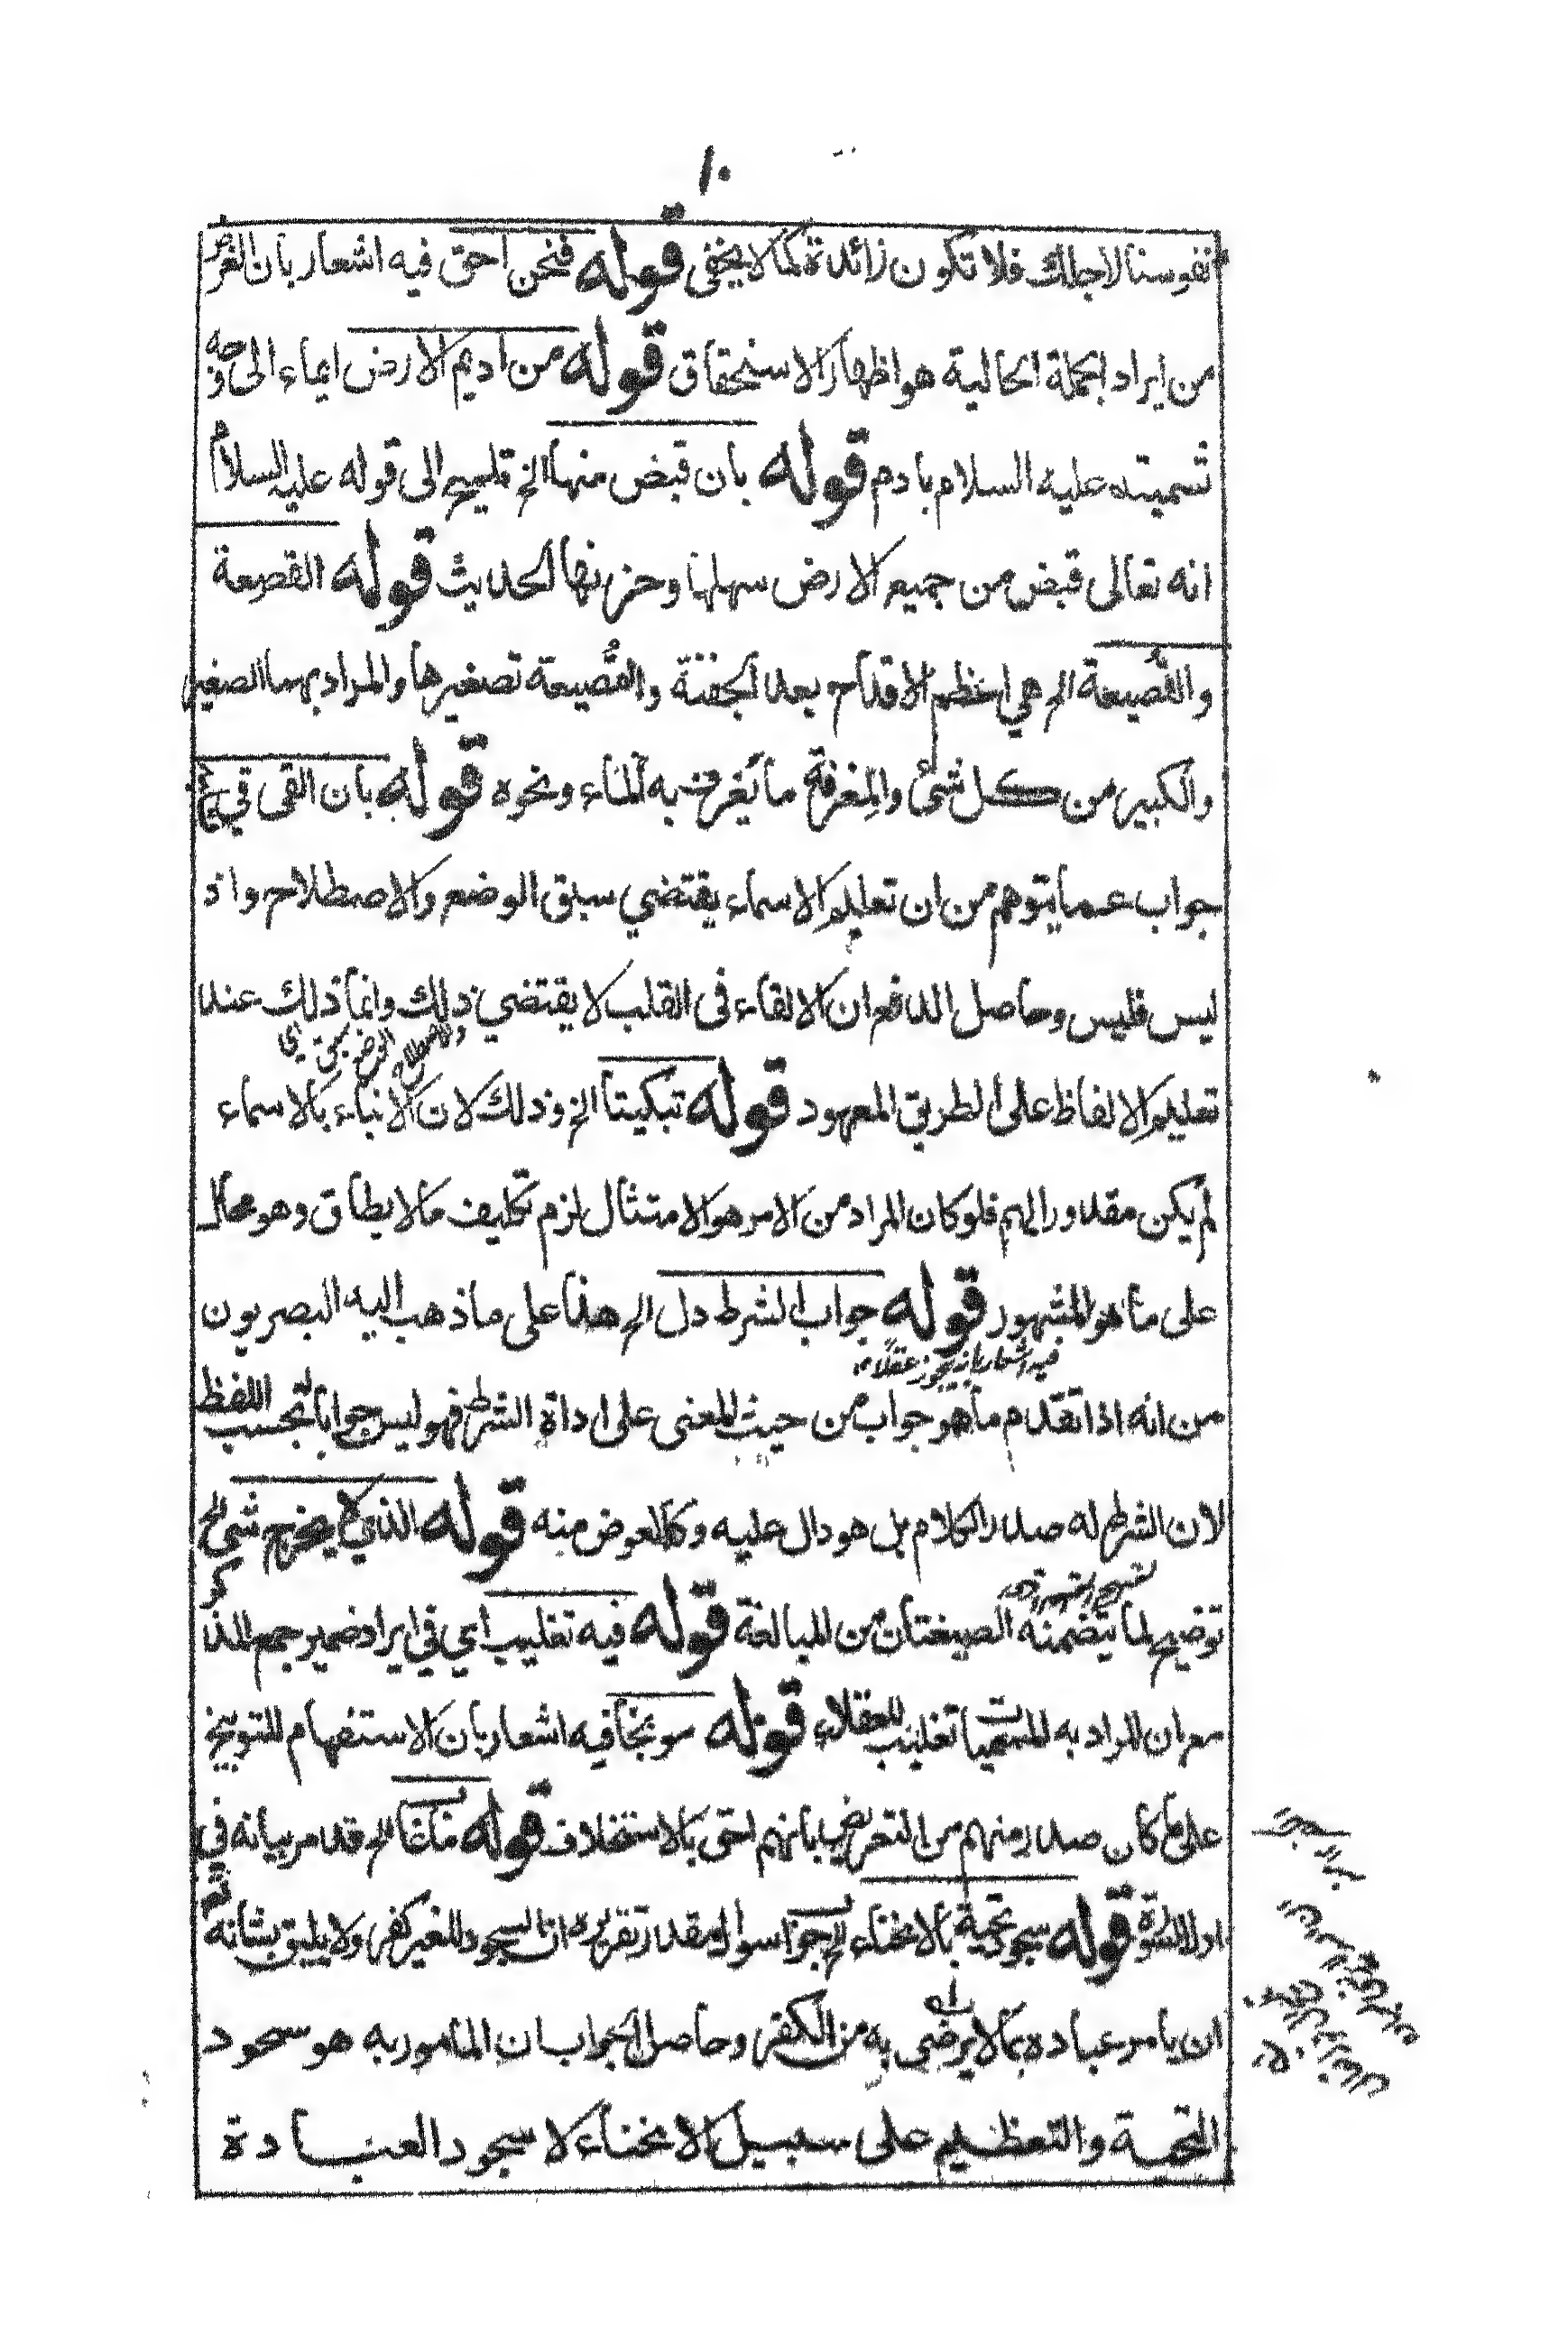 ١٠
نفوسنا لاجلك فلا تكون زائدة كما لا يخفى قوله فنحن احق فيه اشعار بان الغرض
من ايراد الجملة الحالية هو اظهار الاستحقاق قوله من اديم الارض ايماء الى وجه
تسميته عليه السلام بادم قوله بان قبض منها الخ تلميح الى قوله عليه السلام
انه تعالى قبض من جميع الارض سهلها وحزنها الحديث قوله القصعة
والقُصيعة الخ هي اعظم الاقداح بعد الجفنة والقُصيعة تصغيرها والمراد بهما الصغير
والكبير من كل شئ والمِغرفة ما يُغرف به الماء ونحوه قوله بان القى في
جواب عما يتوهم من ان تعليم الاسماء يقتضي سبق الوضع والاصطلاح واذ
ليس فليس وحاصل الدفع ان الالقاء فى القلب لا يقتضي ذلك وانما ذلك عند
تعليم الالفاظ على الطريق المعهود قوله تبكيتا الخ وذلك لان الانباء بالاسماء
لم يكن مقدورا لهم فلو كان المراد من الامر هو الامتثال لزم تكليف ما لا يطاق وهو محال
على ما هو المشهور قوله جواب الشرط دل الخ هذا على ما ذهب اليه البصريون
فيه اشعار بانه يجوز عقلا
من انه اذا تقدم ما هو جواب من حيث المعنى على اداة الشرط فهو ليس جوابا له بحسب اللفظ
لان الشرط له صدر الكلام بل هو دال عليه وكالعوض منه قوله الذي لا يخرج شئ الخ
توضيح لما يتضمنه الصيغتان من المبالغة قوله فيه تغليب اي في ايراد ضمير جمع المذكر
مع ان المراد به المسميات تغليب للعقلاء قوله موبخا فيه اشعار بان الاستفهام للتوبيخ
على ما كان صدر منهم من التعريض بانهم احق بالاستخلاف قوله الخ قد مر بيانه في
اول السورة قوله سجود تحية بالانحناء الخ جواب سوال مقدر تقريره ان السجود للغير كفر ولا يليق بشانه تعم
ان يامر عباده بما لا يرضى به من الكفر وحاصل الجواب ان المامور به هو سجود
التحية والتعظيم على سبيل الانحناء لا سجود العبادة